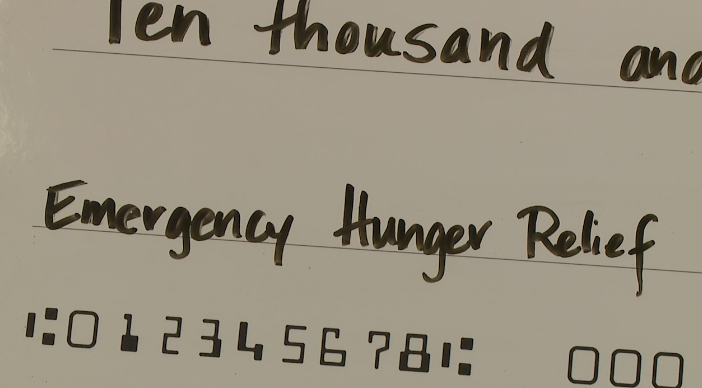 Ten thousand and
Emergency Hunger Relief
⑆012345678⑆ 000